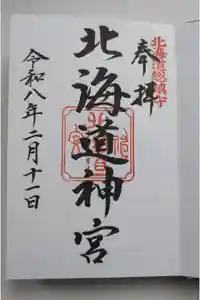 奉拝
北海道総鎮守
北海道神宮
令和八年二月十一日